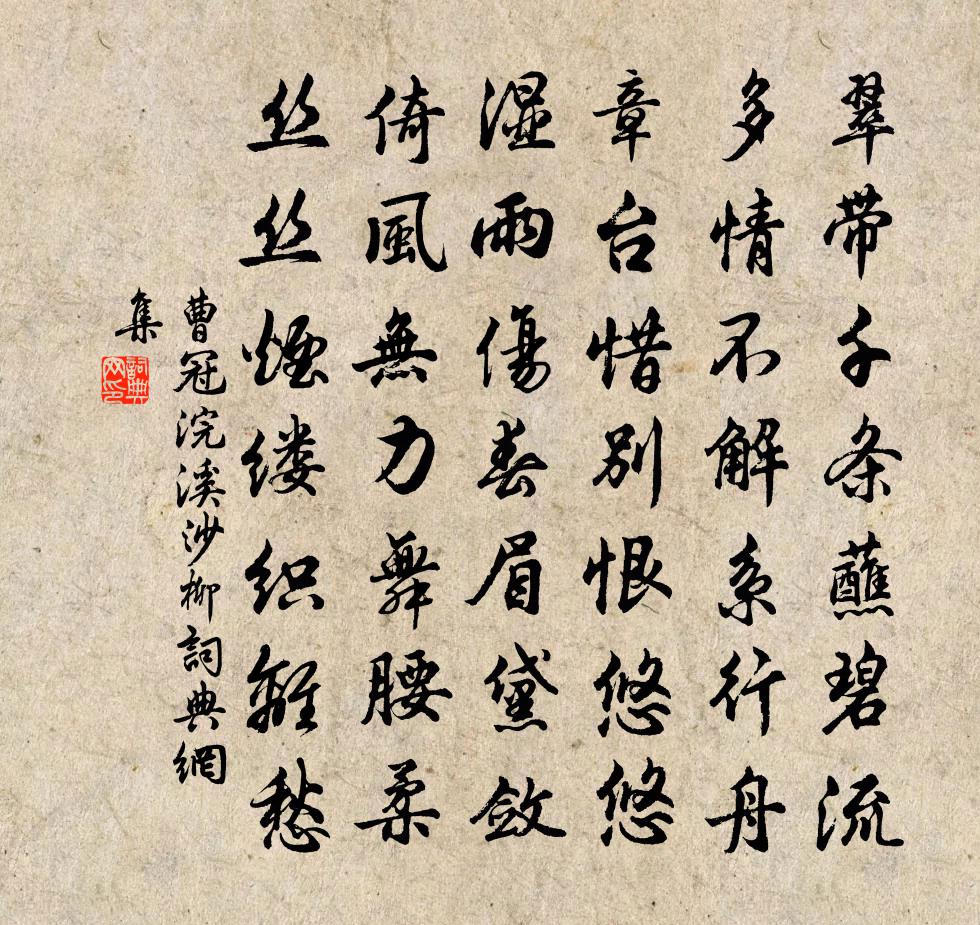 翠带千条蘸碧流
多情不解系行舟
章台惜别恨悠悠
湿雨傷春眉黛斂
倚風無力舞腰柔
丝丝煙缕织離愁
曹冠浣溪沙柳詞典網
集
詞典
网印